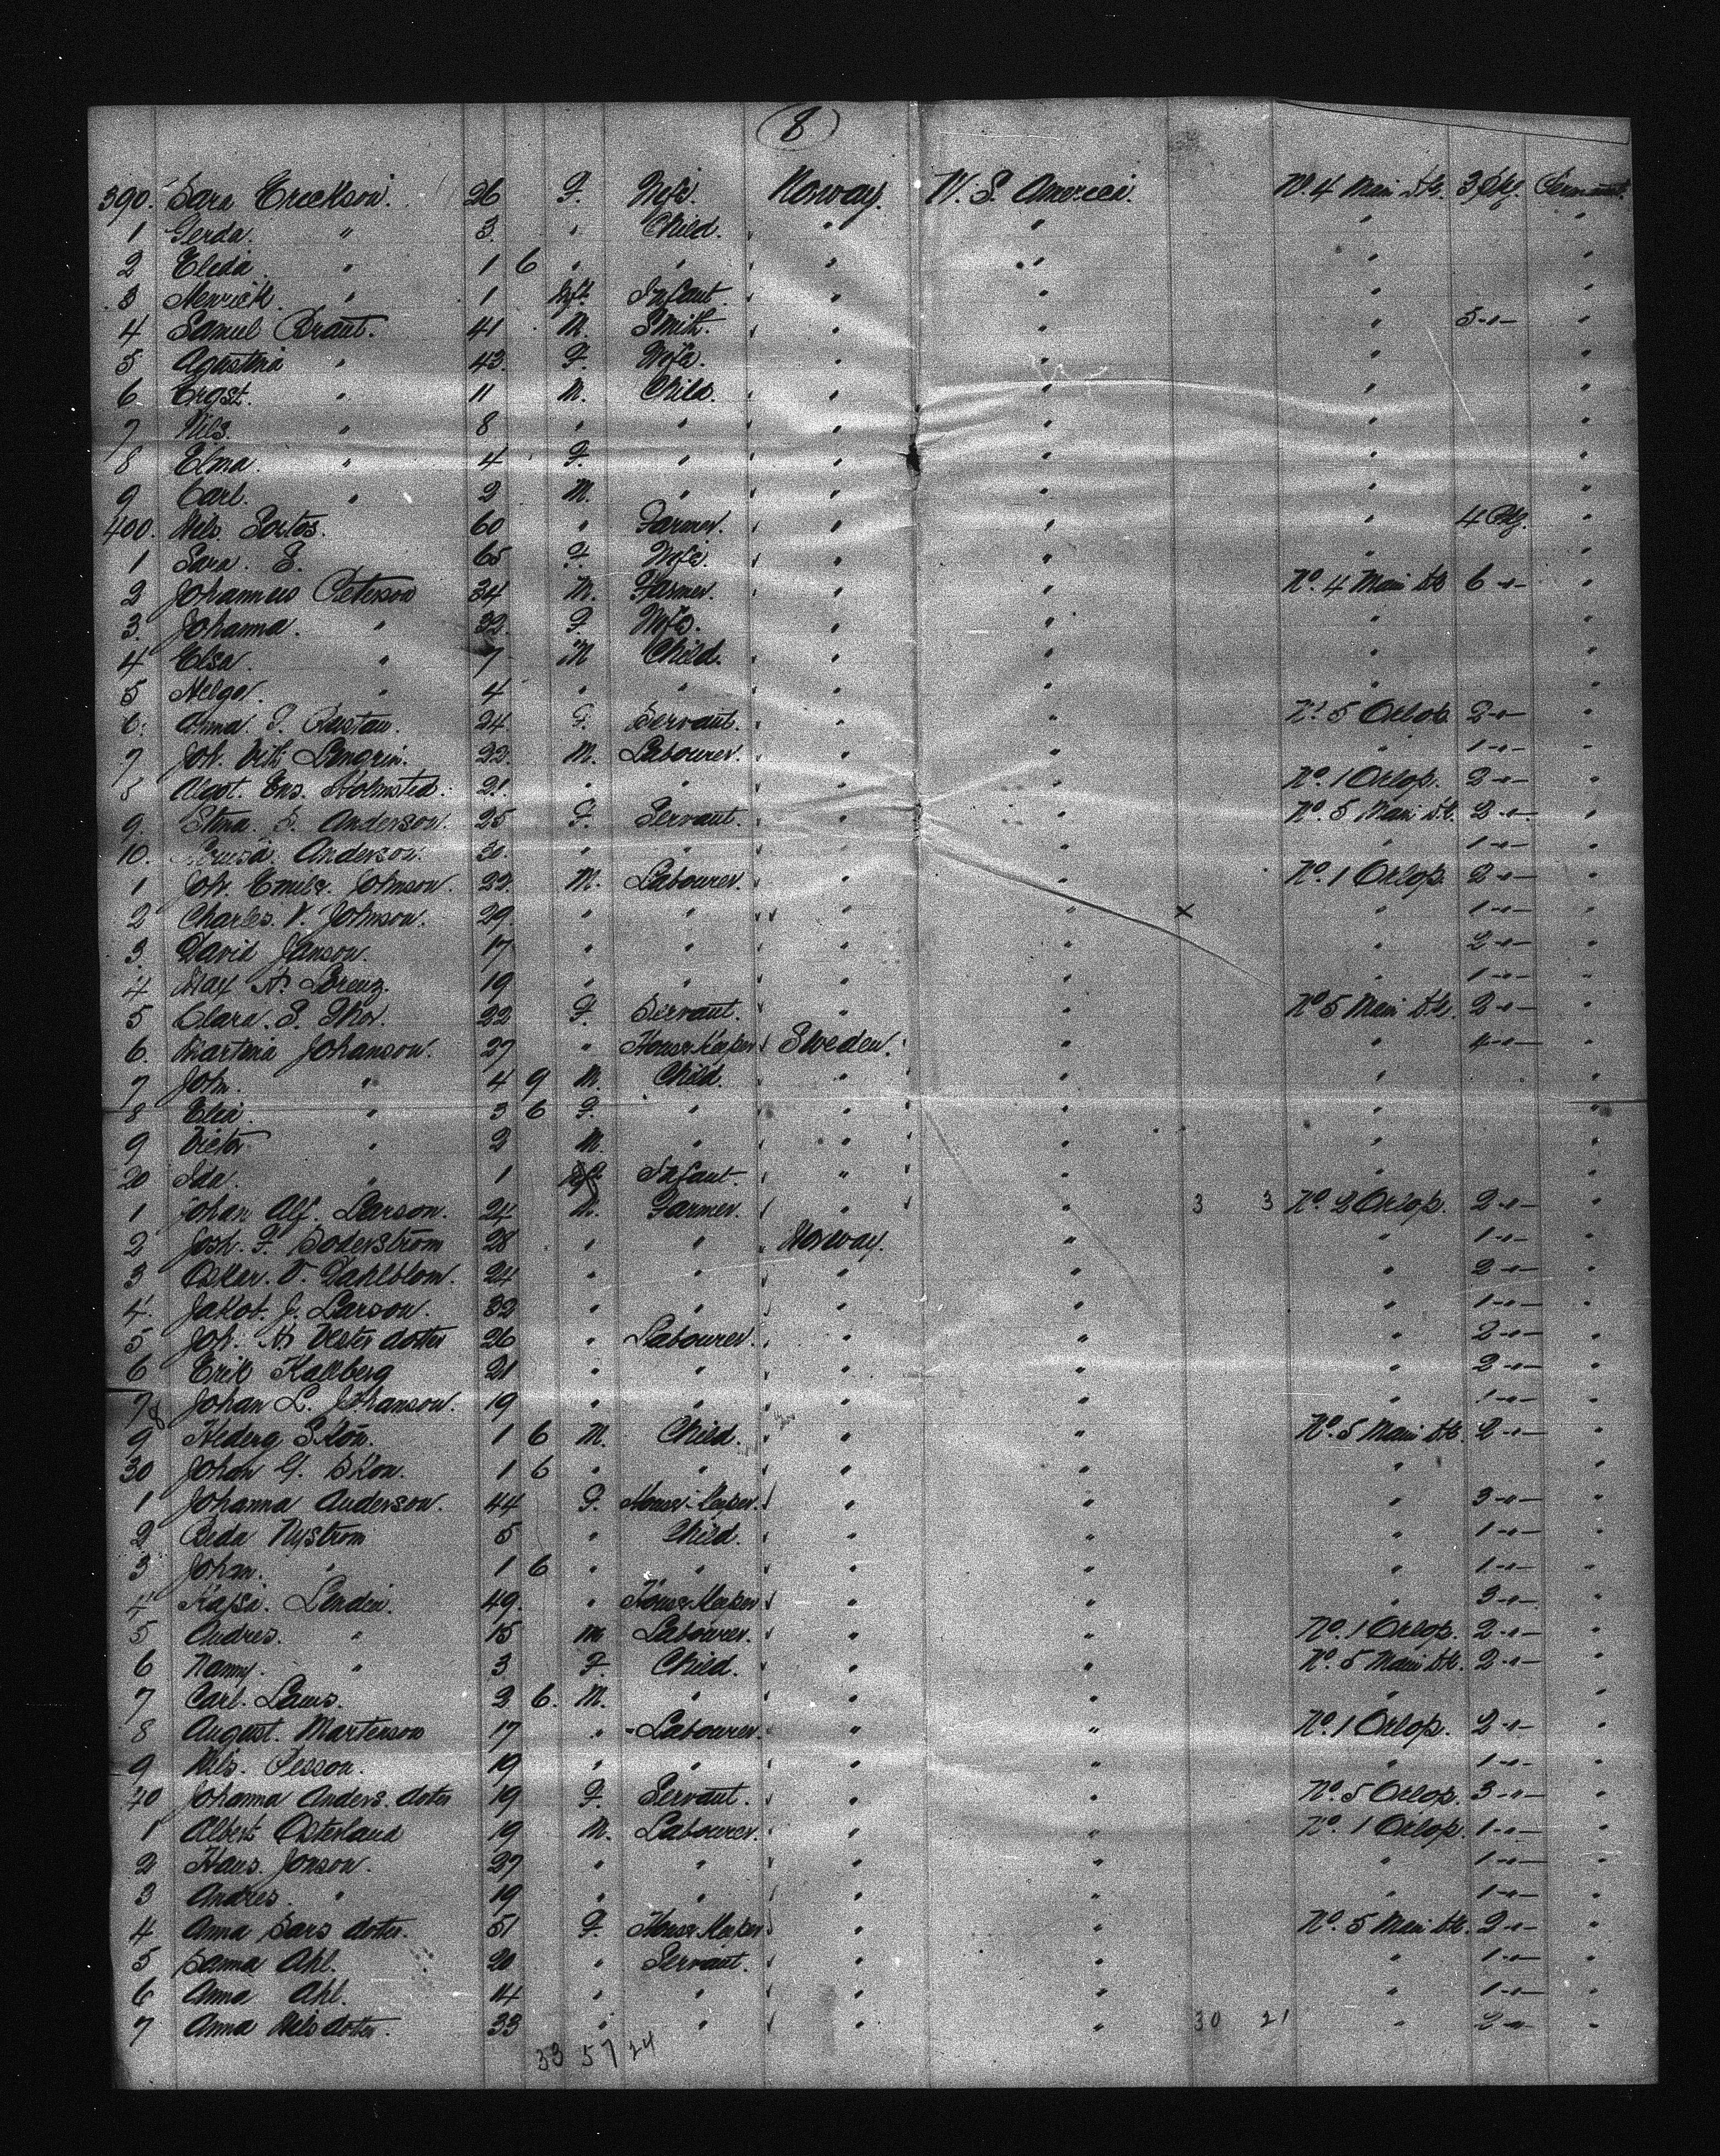 8
390. Sara Erickson. 26 F. Wife. Norway. N. S. America. No. 4 Main Dk. 3 Pkg.
1 Gerda. " 3. " Child. " " " "
2 Eleda " 1 6 " " " " " "
3 " 1 Inft. Infant. " " " "
4 Samuel Brant. 41 M. Smith. " " " 5 -"- "
5 Agustina " 43. F. Wife. " " " "
6 " 11 M. Child. " " " "
7 Nils. " 8 " " " " " "
8 Elma. " 4 F. " " " " "
9 Carl. " 2 M. " " " " "
400. Nils. 60 " Farmer. " " " 4 Pkg. "
1 Sara. S. 65 F. Wife. " " " "
2 Johannes Peterson 34 M. Farmer. " " No. 4 Main Dk 6 -"- "
3. Johanna. " 32. F. Wife. " " " "
4 Elsa. " 7 M Child. " " " "
5 Helge. " 4 " " " " " "
6. Anna. F. 24. F. Servant. " " No. 5 Orlop. 2 -"- "
7 Joh. 22. M. Labourer. " " " 1 -"- "
8 Ens. Holmsted. 21. " " " " No. 1 Orlop. 2 -"- "
9. Stina. S. Anderson. 25 F. Servant. " " No. 5 Main Dk. 2 -"- "
10. Anderson. 30. " " " " " 1 -"- "
1 Joh. Emil Johnson. 22. M. Labourer. " " No. 1 Orlop. 2 -"- "
2 Charles. V. Johnson. 29. " " " " x " 1 -"- "
3. David Janson. 17 " " " " " 2 -"- "
4 Max A. Lorenz. 19 " " " " " 1 -"- "
5 Clara. S. Thor. 22 F. Servant. " " No 5 Main Dk. 2 -"- "
6. Martina Johanson. 27 " House Keeper Sweden. " " 4 -"- "
7 John. " 4 9 M. Child. " " " "
8 " 3 6 F. " " " " "
9 Victor " 2 M. " " " " "
20 Ida. " 1 Infant. " " " "
1 Johan Alf. Larson. 24 M. Farmer. " " 3 3 No. 2 Orlop. 2 -"- "
2 F. Soderstrom 28 " " Norway. " " 1 -"- "
3 Oskar. V. Dahlblom. 24 " " " " " 2 -"- "
4. Jakob. J. Larson. 32 " " " " " 1 -"- "
5 Joh. A. dotter 26 " Labourer. " " " 2 -"- "
6 Erik Kallberg 21 " " " " " 2 -"- "
7 8 Johan L. Johanson. 19 " " " " " 1 -"- "
9 Hederg Skön. 1 6 M. Child. " " No. 5 Main Dk. 2 -"- "
30 Johan G. Skon. 1 6 " " " " " "
1 Johanna Anderson. 44 F. House-Keeper. " " " 3 -"- "
2 Beda Nystrom 5 " Child. " " " 1 -"- "
3 Johan. " 1 6 " " " " " 1 -"- "
4 Kajsa. Lendin. 49. " House Keeper " " " 3 -"- "
5 Andres. " 15 m Labourer. " " No. 1 Orlop. 2 -"- "
6 Nanny. " 3 F. Child. " " No. 5 Main Dk. 2 -"- "
7 Carl. Laws. 3 6. M. " " " " "
8 August. Martenson 17 " Labourer. " " No. 1 Orlop. 2 -"- "
9 Nils. Pesson. 19 " " " " " 1 -"- "
40 Johanna Anders. doter 19 F. Servant. " " No. 5 Orlop. 3 -"- "
1 Albert Osterland 19 M. Labourer. " " No. 1 Orlop. 1 -"- "
2 Hans. Jonson. 27 " " " " " 1 -"- "
3 Andres. " 19 " " " " " 1 -"- "
4 Anna Lars doter. 51 F. House Keeper " " No. 5 Main Dk. 2 -"- "
5 Sanna Ahl. 20 " Servant. " " " 1 -"- "
6 Anna Ahl. 14 " " " " " 1 -"- "
7 Anna Nils doter. 33 " " " " 30 21 " 2 -"- "
33 57 24